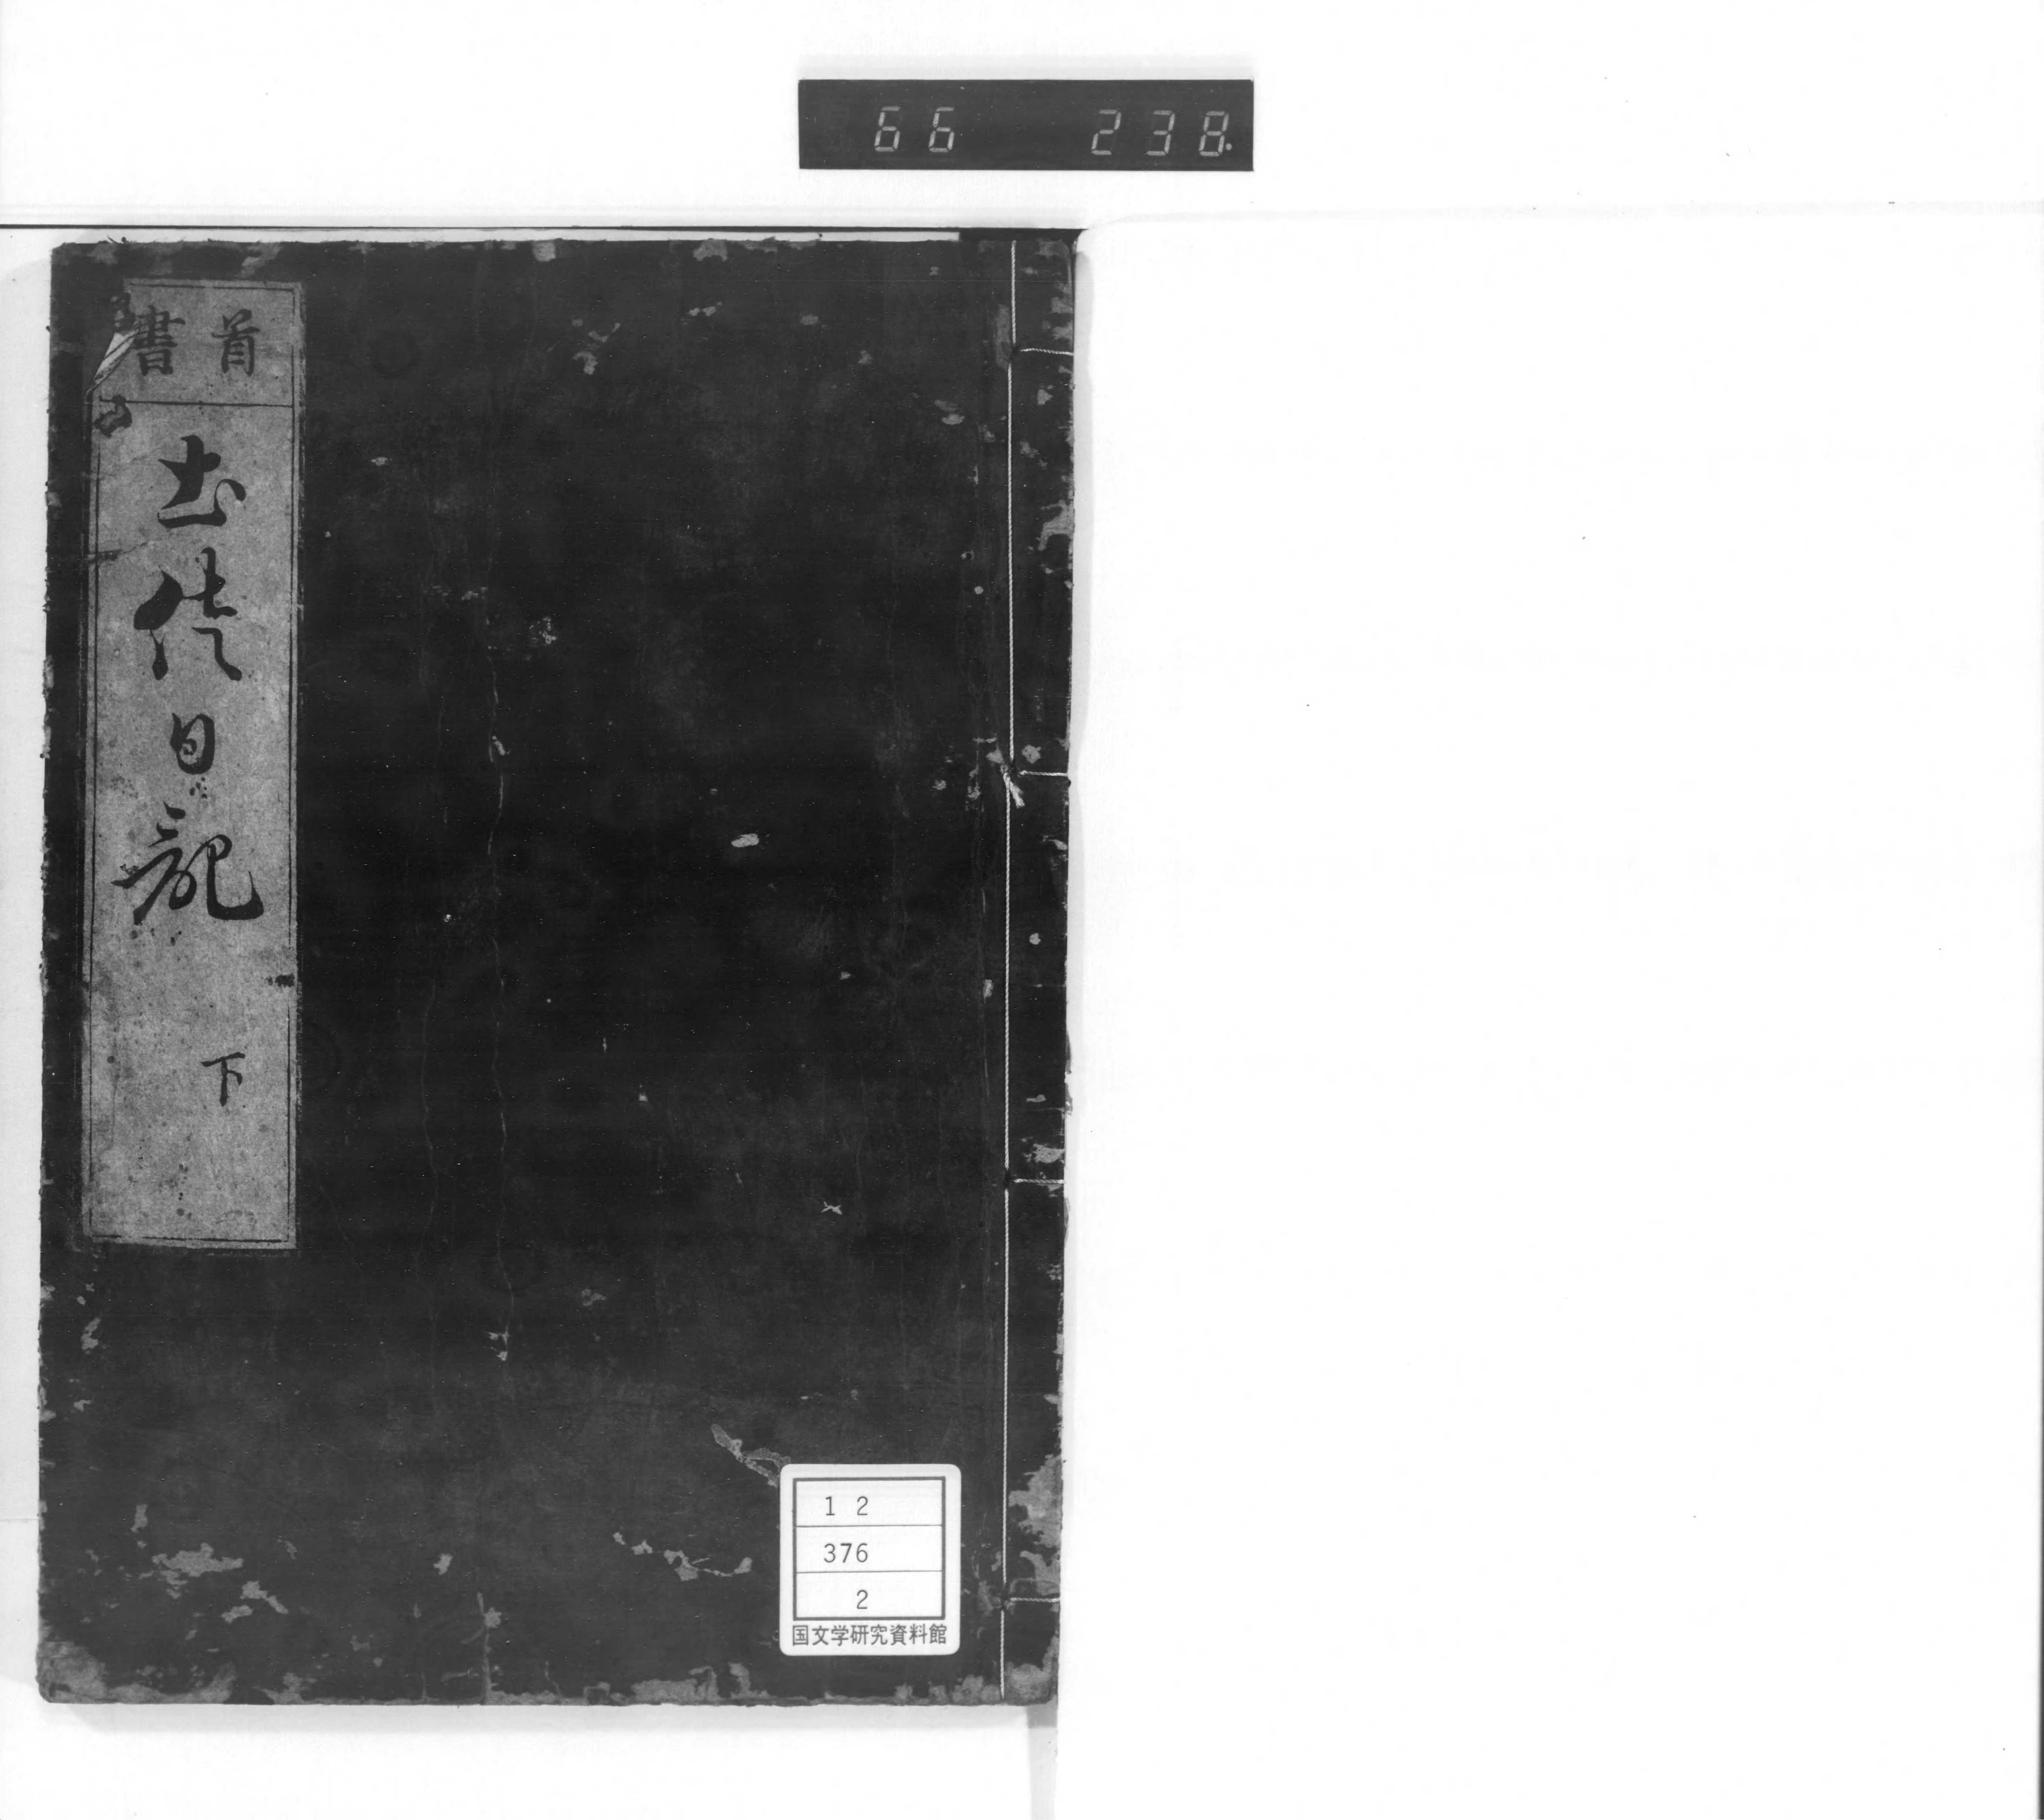 66 238.
首書
土佐日記
下
12
376
2
国文学研究資料館